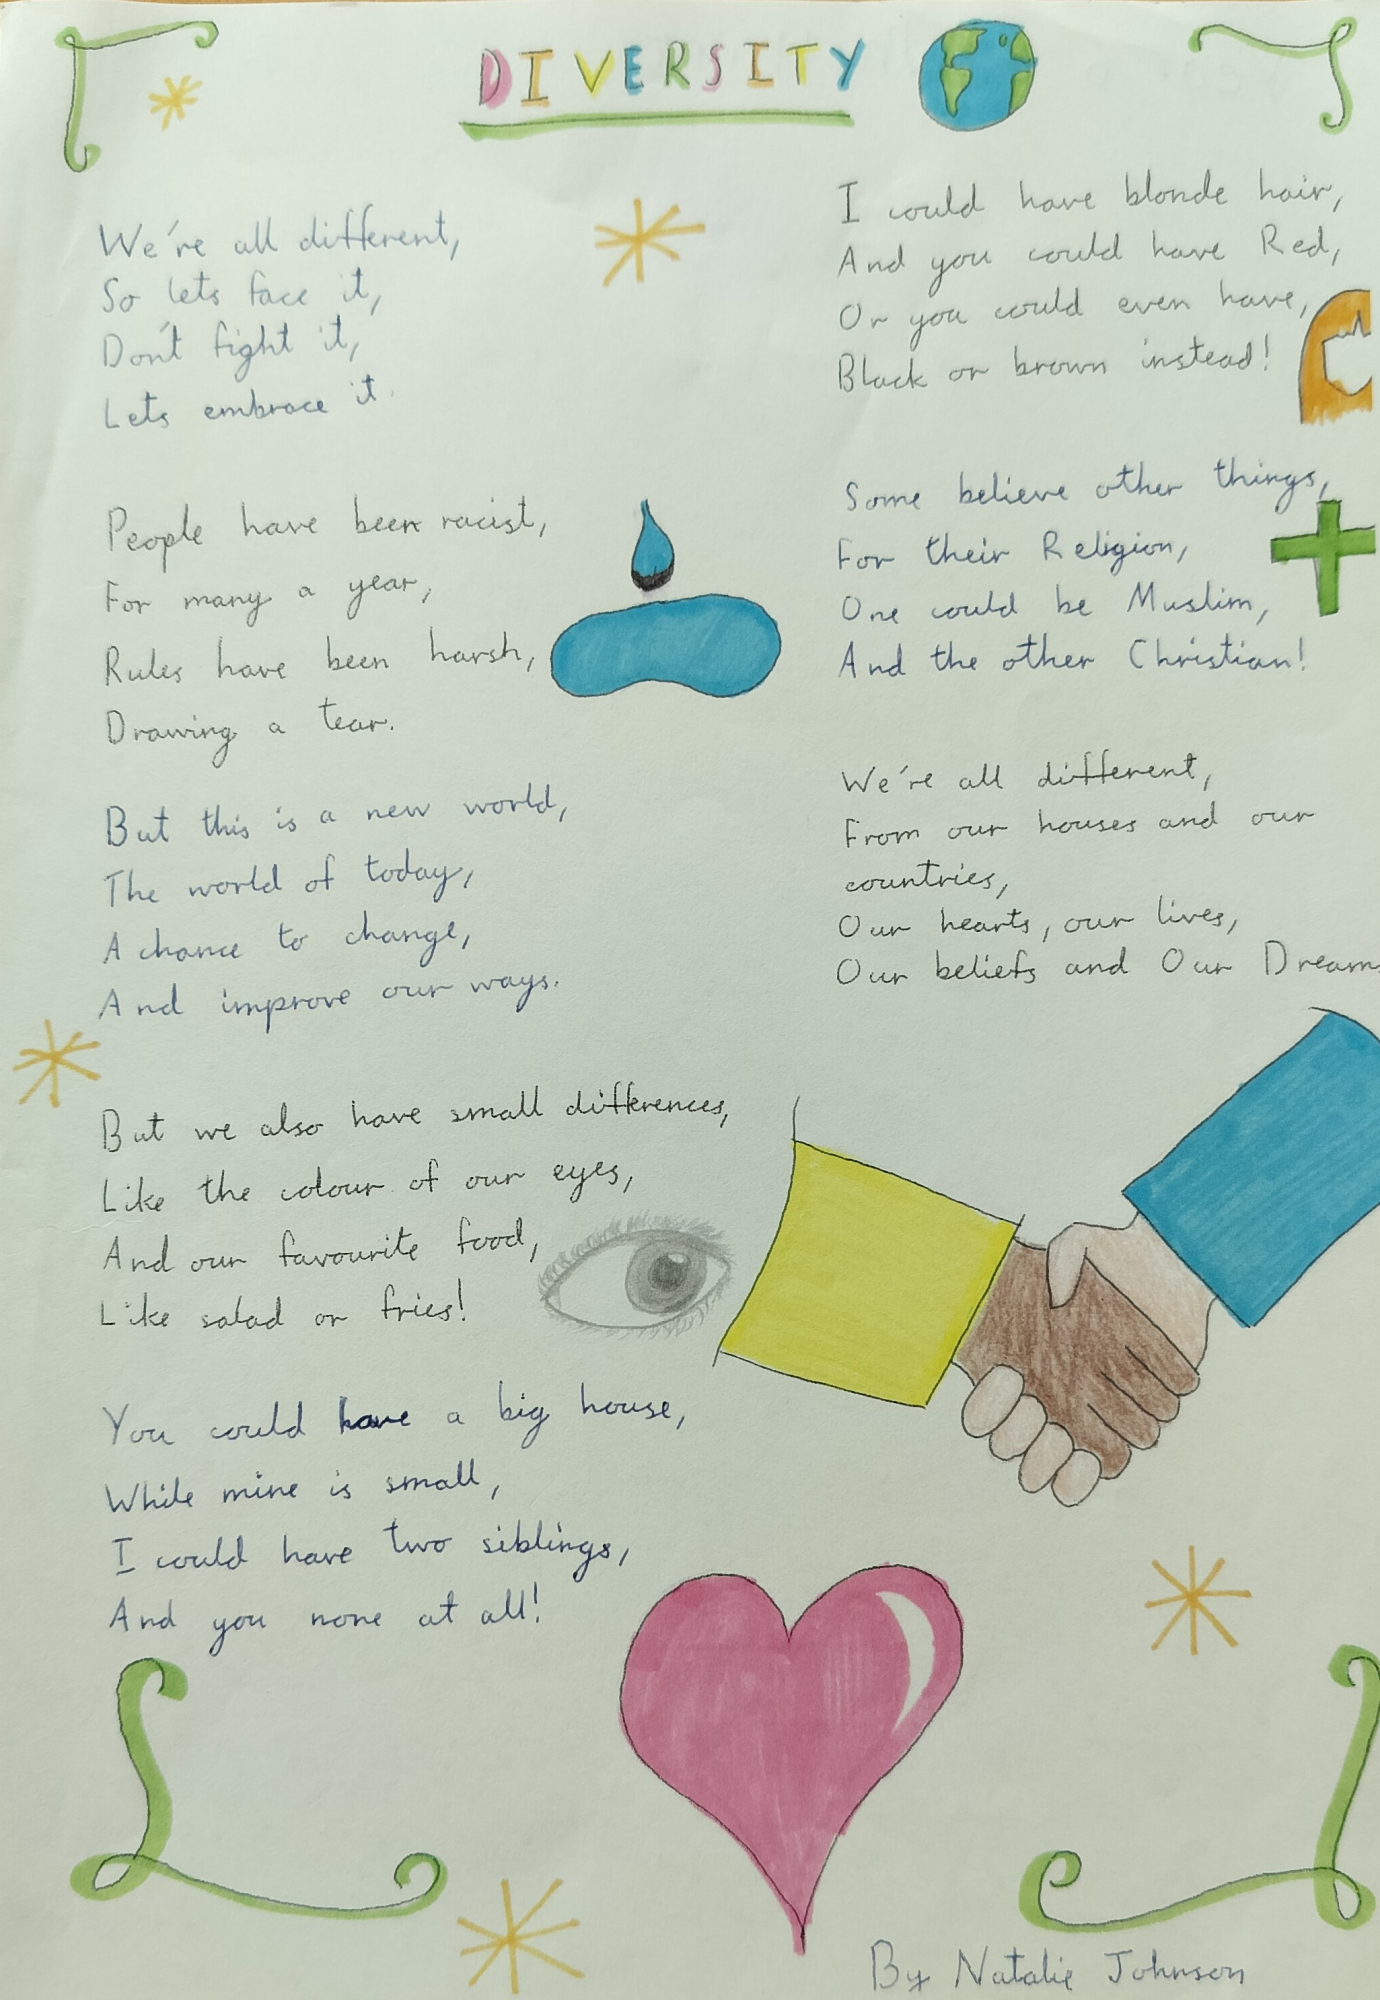 DIVERSITY
We're all different,
So lets face it,
Don't fight it,
Lets embrace it.
People have been racist,
For many a year,
Rules have been harsh,
Drawing a tear.
But this is a new world,
The world of today,
A chance to change,
And improve our ways.
But we also have small differences,
Like the colour of our eyes,
And our favourite food,
Like salad or fries!
You could have a big house,
While mine is small,
I could have two siblings,
And you none at all!
I could have blonde hair,
And you could have Red,
Or you could even have,
Black or brown instead!
Some believe other things,
For their Religion,
One could be Muslim,
And the other Christian!
We're all different,
From our houses and our
countries,
Our hearts, our lives,
Our beliefs and Our Dreams
By Natalie Johnson